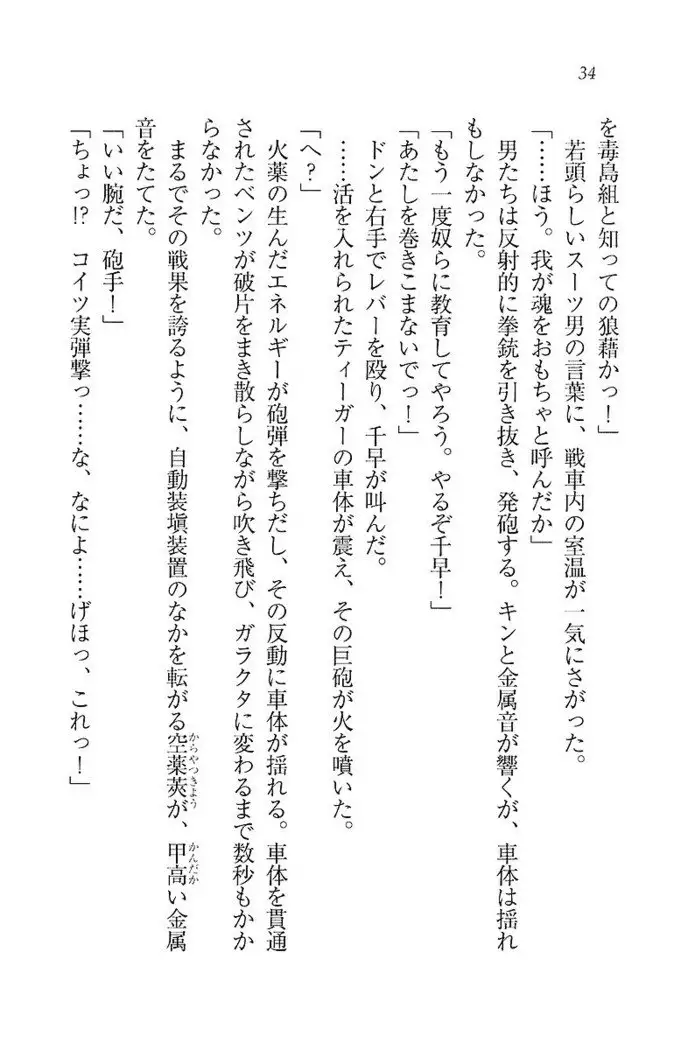 34
を毒島組と知っての狼藉かっ！」
若頭らしいスーツ男の言葉に、戦車内の室温が一気にさがった。
「……ほう。我が魂をおもちゃと呼んだか」
男たちは反射的に拳銃を引き抜き、発砲する。キンと金属音が響くが、車体は揺れ
もしなかった。
「もう一度奴らに教育してやろう。やるぞ千早！」
「あたしを巻きこまないでっ！」
ドンと右手でレバーを殴り、千早が叫んだ。
……活を入れられたティーガーの車体が震え、その巨砲が火を噴いた。
「へ？」
火薬の生んだエネルギーが砲弾を撃ちだし、その反動に車体が揺れる。車体を貫通
されたベンツが破片をまき散らしながら吹き飛び、ガラクタに変わるまで数秒もかか
らなかった。
まるでその戦果を誇るように、自動装塡装置のなかを転がる空薬莢が、甲高い金属
からやつきよう
かんだか
音をたてた。
「いい腕だ、砲手！」
「ちょっ!?　コイツ実弾撃っ……な、なによ……げほっ、これっ！」